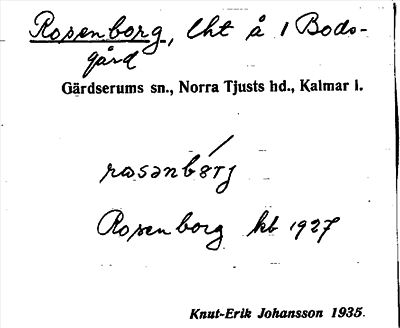 Rosenborg, lht å 1 Bods-
gård
Gärdserums sn., Norra Tjusts hd., Kalmar l.
Rosenborg kb 1927
Knut-Erik Johansson 1935.